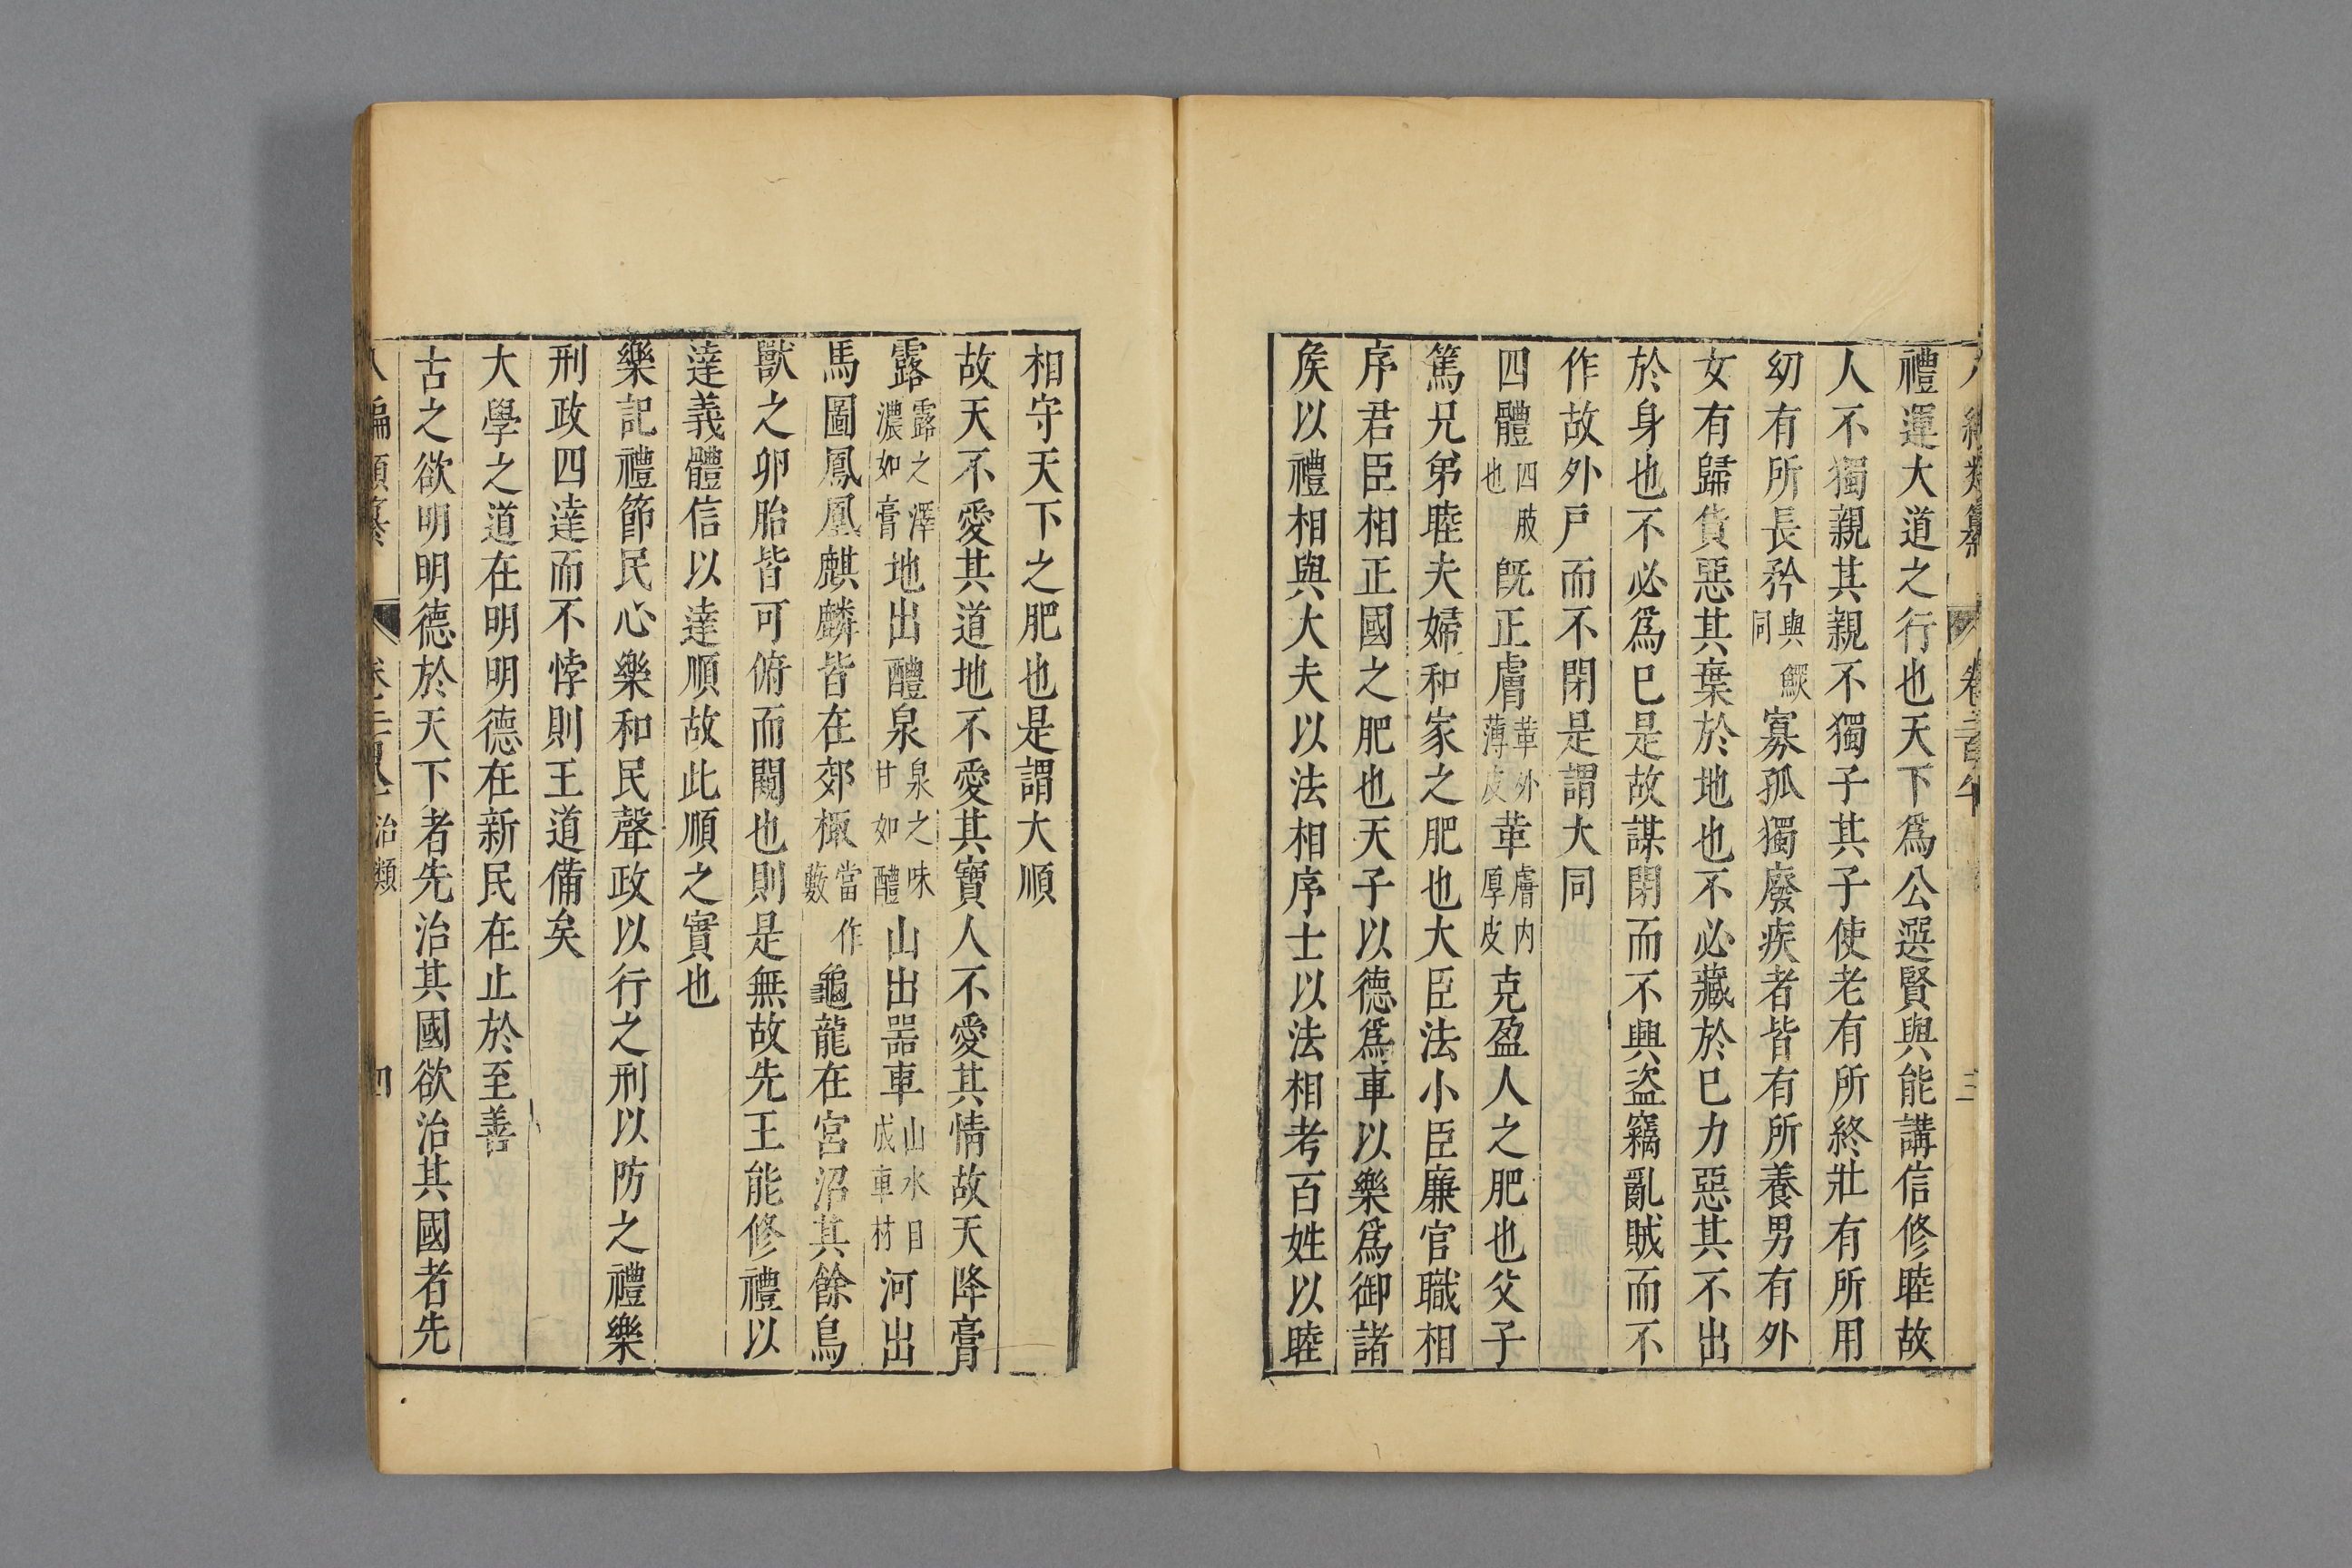 禮運大道之行也天下爲公選賢與能講信修睦故
人不獨親其親不獨子其子使老有所終壯有所用
幼有所長矜與鰥同寡孤獨廢疾者皆有所養男有外
女有歸貨惡其棄於地也不必藏於已力惡其不出
於身也不必爲已是故謀閉而不興盜竊亂賊而不
作故外戸而不閉是謂大同
四體四肢也旣正膚革外薄皮革膚内厚皮克盈人之肥也父子
篤兄弟睦夫婦和家之肥也大臣法小臣廉官職相
序君臣相正國之肥也天子以德爲車以樂爲御諸
矦以禮相與大夫以法相序士以法相考百姓以睦
相守天下之肥也是謂大順
故天不愛其道地不愛其寶人不愛其情故天降膏
露露之澤濃如膏地出醴泉泉之味甘如醴山出噐車山水自成車材河出
馬圖鳳凰麒麟皆在郊棷當作藪龜龍在宮沼其餘鳥
獸之卵胎皆可俯而闚也則是無故先王能修禮以
達義體信以達順故此順之實也
樂記禮節民心樂和民聲政以行之刑以防之禮樂
刑政四達而不悖則王道備矣
大學之道在明明德在新民在止於至善
古之欲明明德於天下者先治其國欲治其國者先
編類纂 治類 四